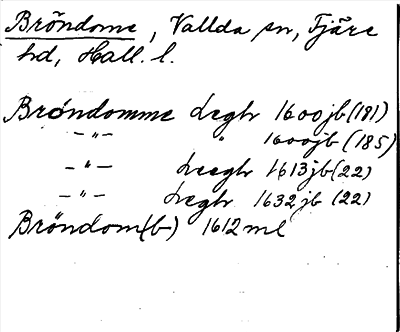 Bröndome, Vallda sn, Fjäre
hd, Hall. l.
Bröndomme degh 1600jb (181)
—"— " 1600jb (185)
—"— deegh 1613jb (22)
—"— degh 1632jb (22)
Bröndom(b-) 1612 ml